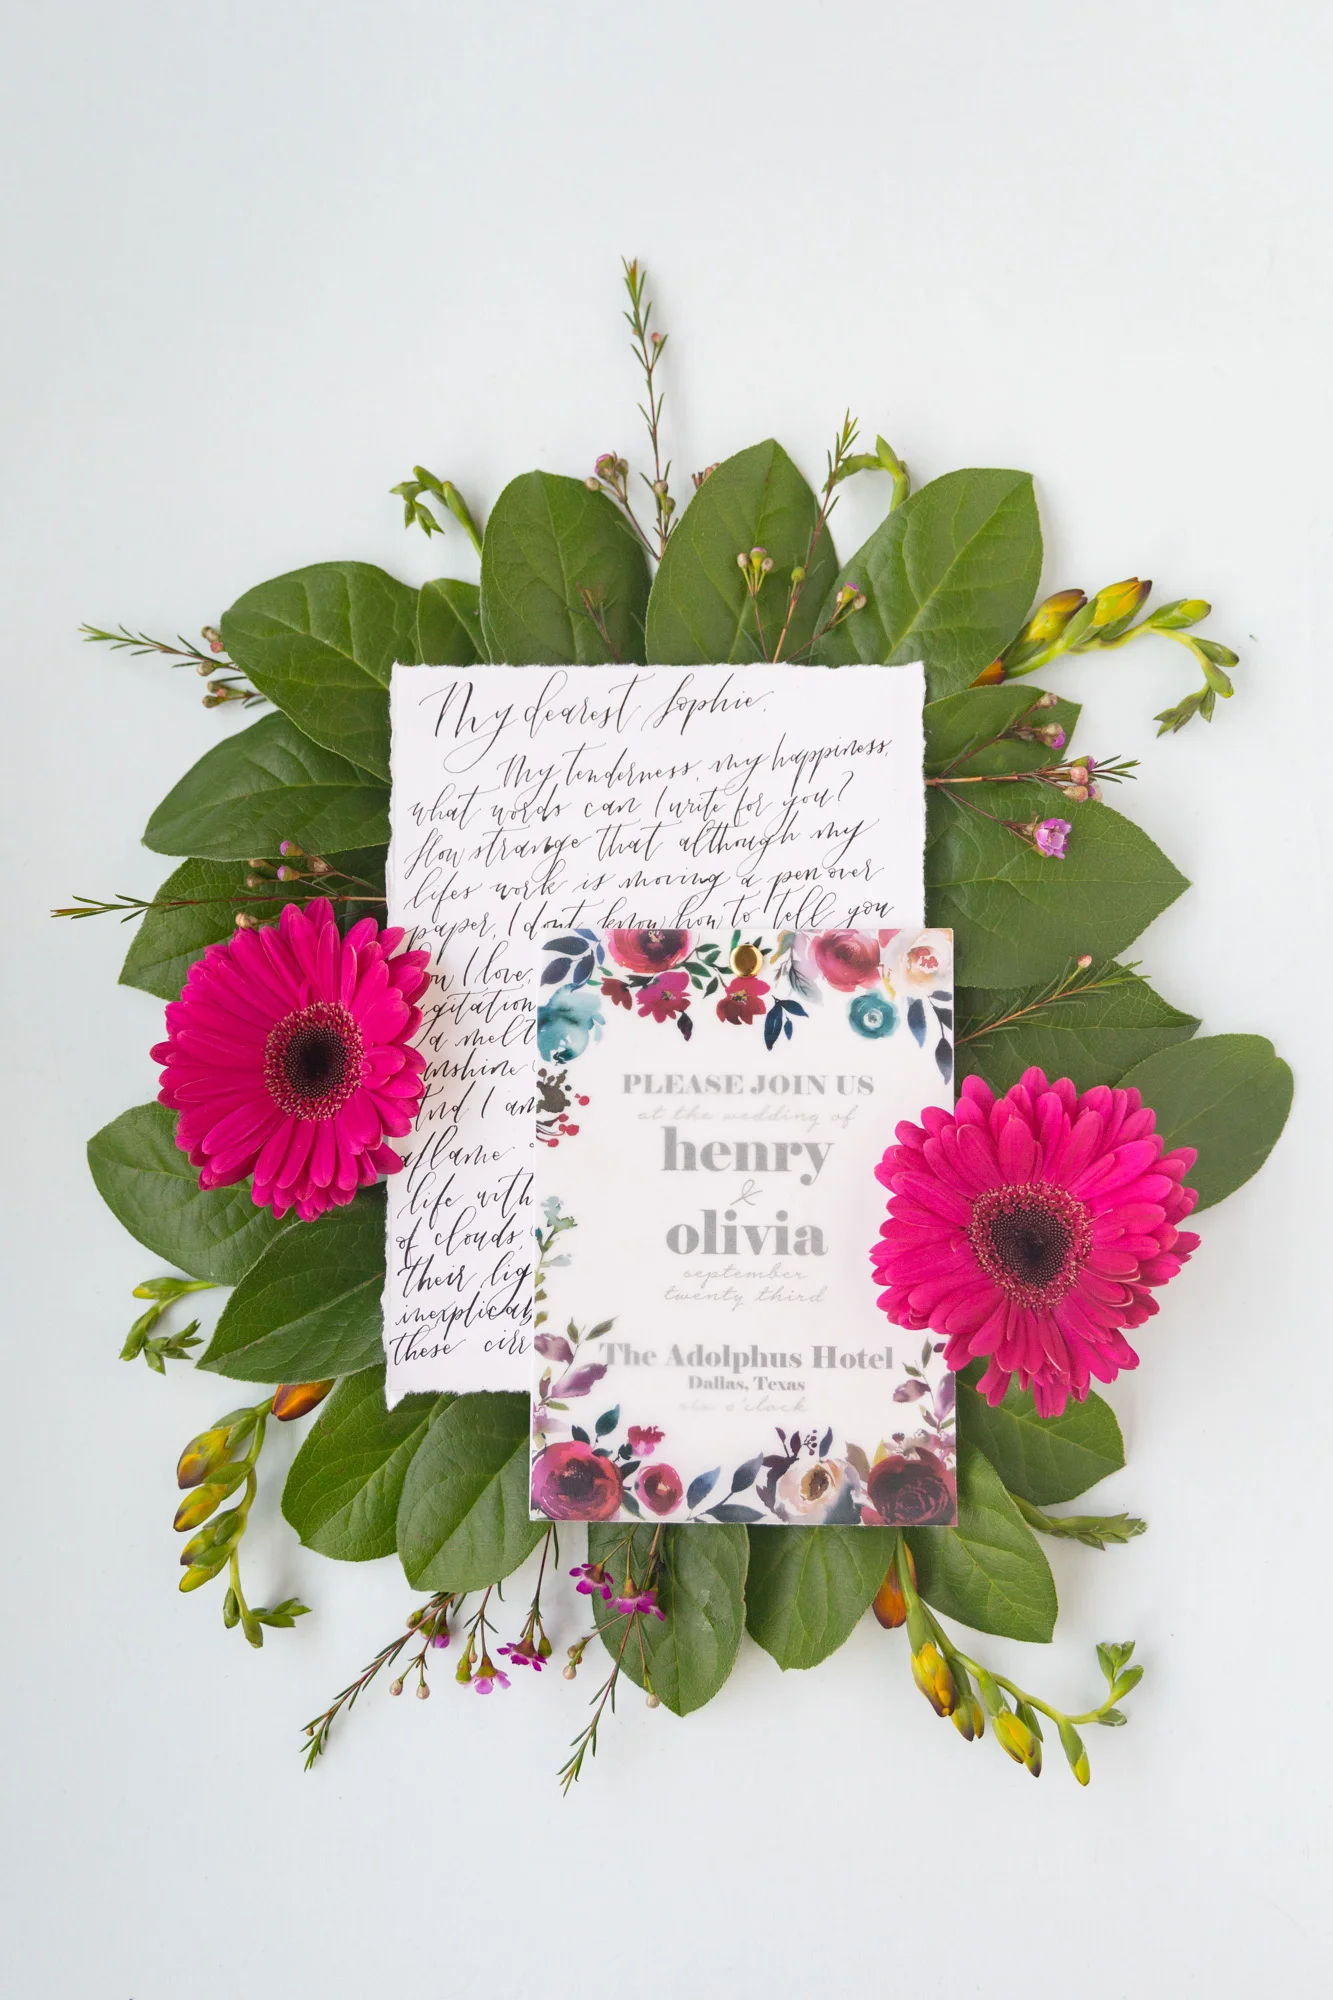 My dearest Sophie,
My tenderness, my happiness,
what words can I write for you?
How strange that although my
lifes work is moving a pen over
paper, I dont know how to tell you
I love,
a melt
And I am
aflame
life with
of clouds,
their lig
inexplicab
these cirr
PLEASE JOIN US
at the wedding of
henry
&
olivia
september
twenty third
The Adolphus Hotel
Dallas, Texas
six o'clock